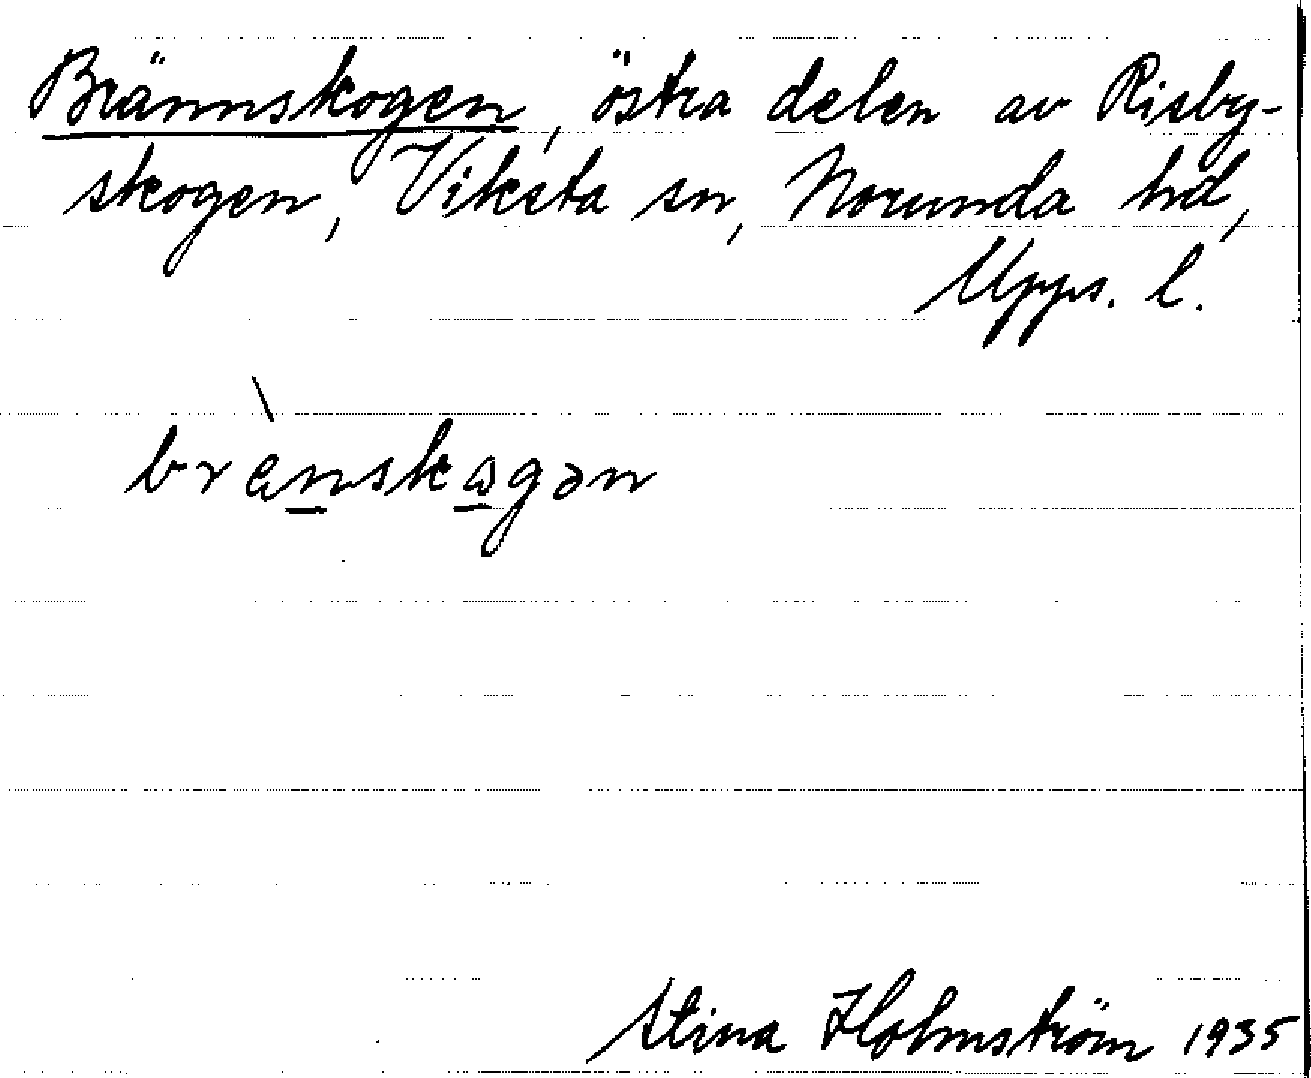 Brännskogen, östra delen av Risby-
skogen, Viksta sn, Norunda hd,
Upps. l.
bränskogən
Stina Holmström 1935